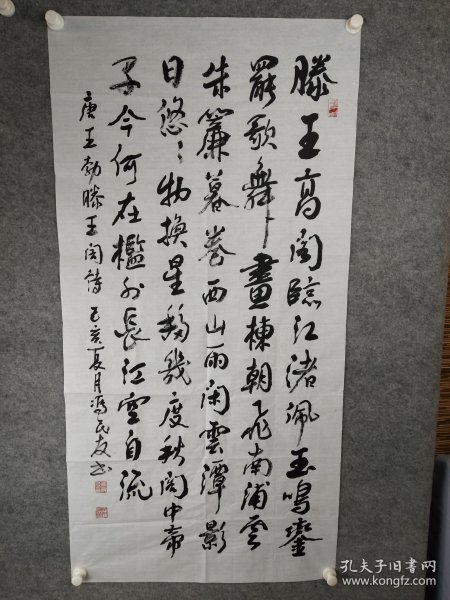 滕王高阁臨江渚佩玉鳴鑾
罷歌舞畫棟朝飞南浦雲
朱簾暮卷西山雨闲雲潭影
日悠〻物换星移幾度秋阁中帝
子今何在檻外長江空自流
唐王勃滕王阁诗 己亥夏月馮民友书
孔夫子旧书网
www.kongfz.com